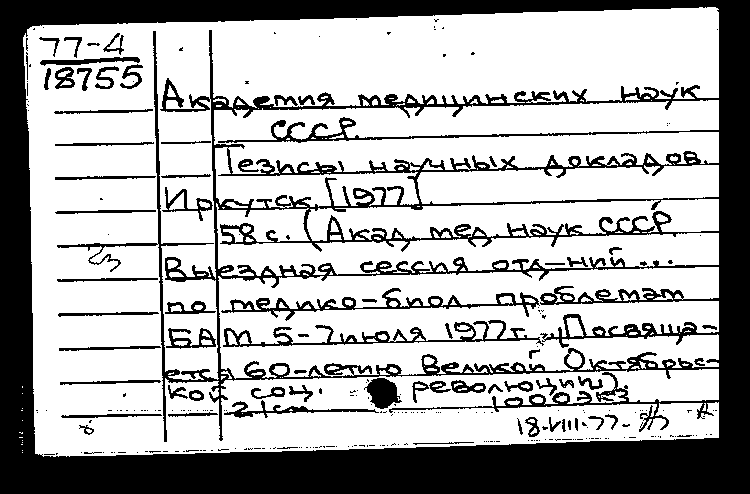 77-4
18755
Академия медицинских наук
СССР.
Тезисы научных докладов.
Иркутск. [1977].
58 с. (Акад. мед. наук СССР.
Выездная сессия отд-ний...
по медико-биол. проблемам
БАМ. 5-7 июля 1977 г. Посвяща-
ется 60-летию Великой Октябрьс-
кой соц. революции).
21 cm 1000 экз.
18.VIII.77-